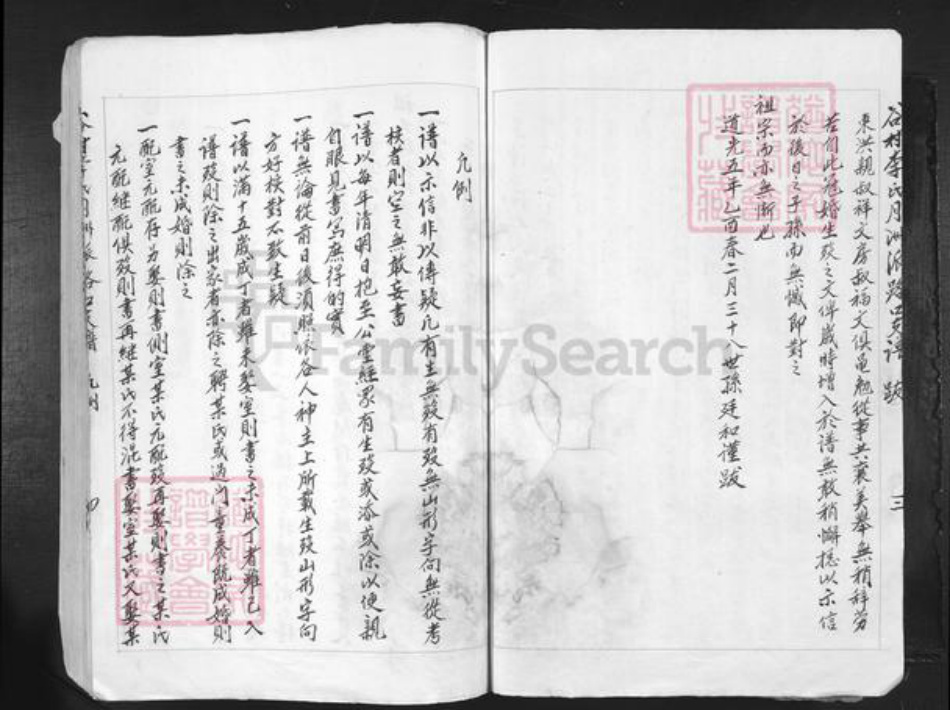 谷村李氏月洲派路口支譜 跋 三
東洪親叔祥文房叔福文俱黽勉從事共襄美舉無稍辭勞
若們此冠婚生歿之文俾歲時增入於譜無敢稍懈摠以示信
於後日之子孫而無憾即對之
祖宗而亦無慚也
道光五年乙酉春二月三十八世孫廷和謹跋
凡例
一譜以示信非以傳疑凡有生無歿有歿無山形字向無從考
核者則空之無敢妄書
一譜以每年清明日抱至公堂經眾有生歿或添或除以便親
自眼見書寫庶得的實
一譜無論從前日後須照依各人神主上所載生歿山形字向
方好核對不致生疑
一譜以滿十五歲成丁者雖未娶室則書之未成丁者雖已入
譜歿則除之出家者亦除之聘某氏或過門童養既成婚則
書之未成婚則除之
一配室元配存另娶則書側室某氏元配歿再娶則書之某氏
元配継配俱歿則書再継某氏不得混書娶室某氏又娶某
凡例 四
FamilySearch